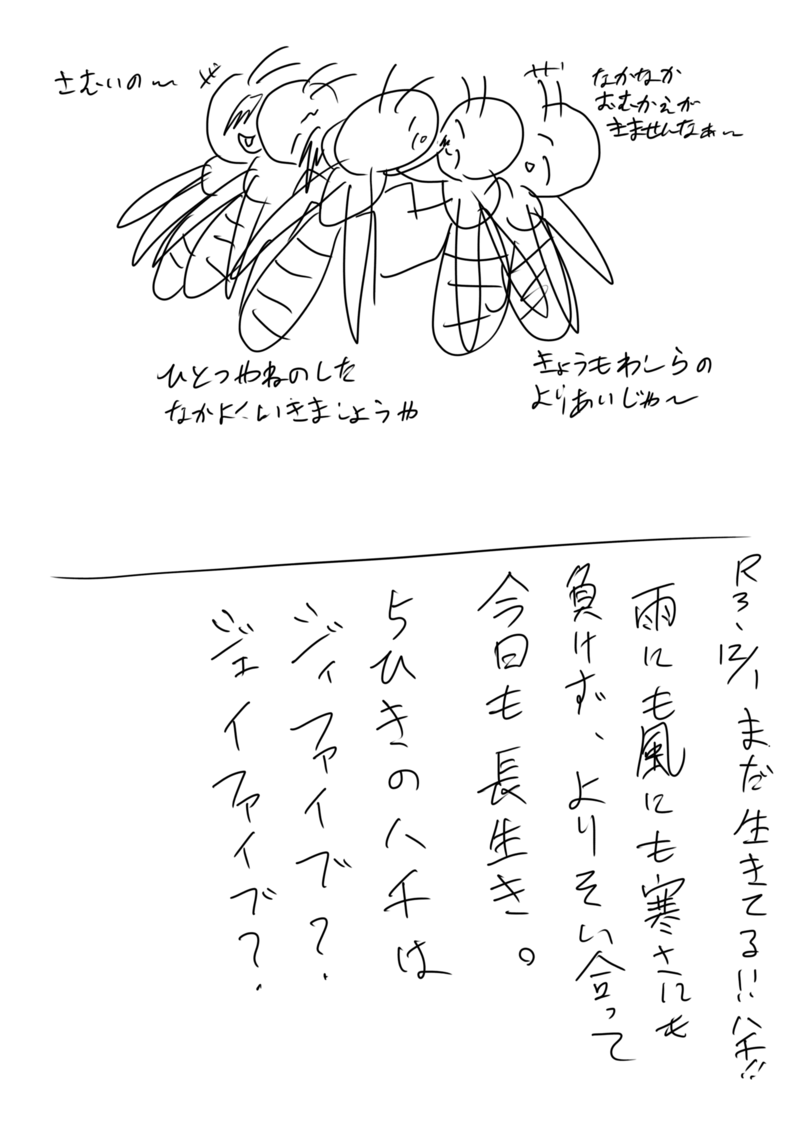 さむいの〜
なかなか
おむかえが
きませんなぁ〜
ひとつやねのした
なかよくいきましょうや
きょうもわしらの
よりあいじゃ〜
R3、12/1 まだ生きてる!!ハチ!!
雨にも風にも寒さにも
負けず、よりそい合って
今日も長生き。
5ひきのハチは
ジィファイブ?
ジェイファイブ?